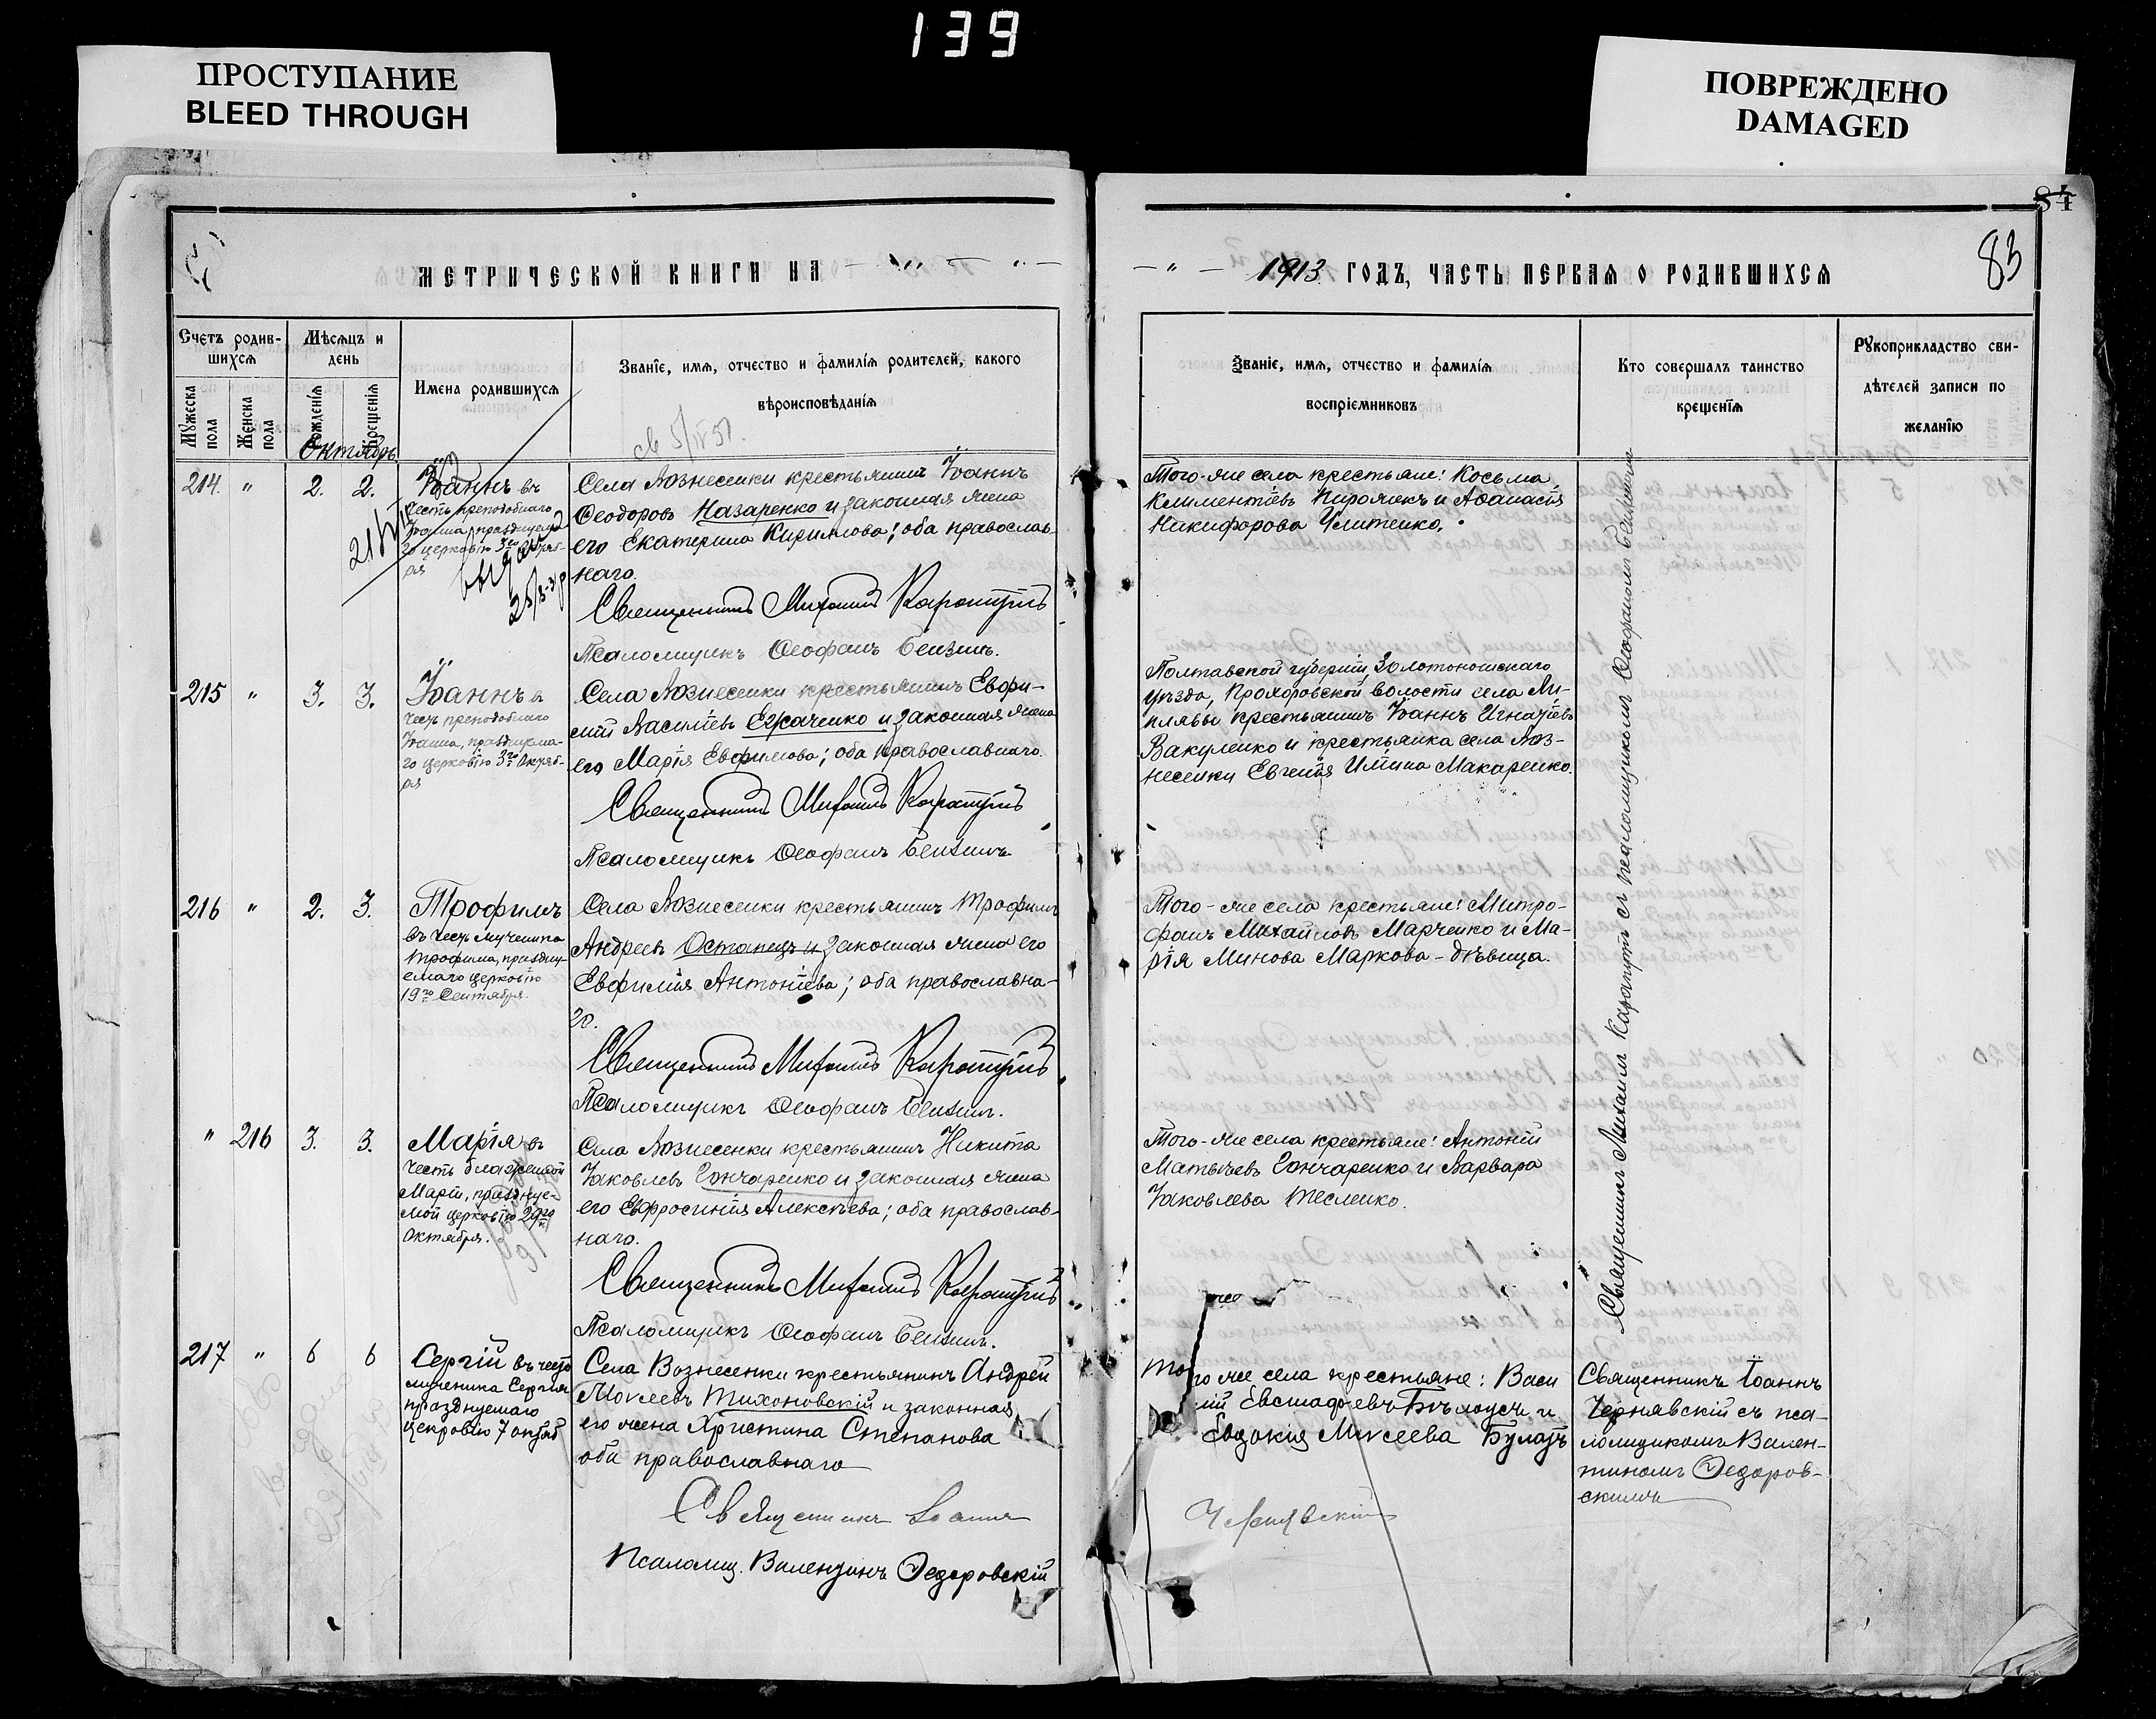 139
ПРОСТУПАНИЕ
BLEED THROUGH
ПОВРЕЖДЕНО
DAMAGED
84
83
МЕТРИЧЕСКОЙ КНИГИ НА
1913 ГОДЪ, ЧАСТЬ ПЕРВАЯ О РОДИВШИХСЯ
Счетъ родив-
шихся
Мужеска пола
Женска пола
Мѣсяцъ и
день
Рожденія
Крещенія
Имена родившихся
Званіе, имя, отчество и фамилія родителей, какого
вѣроисповѣданія
Званіе, имя, отчество и фамилія
воспріемниковъ
Кто совершалъ таинство
крещенія
Рукоприкладство сви-
дѣтелей записи по
желанію
Октябрь
214. " 2. 2.
Іоаннъ въ
честь преподобнаго
Іоанна, празднуема
го церковію 3го Октяб-
ря
Села Вознесенки крестьянинъ Іоаннъ
Ѳеодоровъ Назаренко и законная жена
его Екатерина Кириллова; оба православ-
наго.
Священникъ Михаилъ Карапутъ
Псаломщикъ Ѳеофанъ Бензинъ.
Того-же села крестьяне: Косьма
Климентіевъ Пирожокъ и Аѳанасія
Никифорова Улитенко.
215 " 3. 3.
Іоаннъ в
честь преподобнаго
Іоанна, празднуема-
го церковію 3го Октяб-
ря
Села Вознесенки крестьянинъ Евфи-
мій Василіевъ Сукаченко и законная жена
его Марія Евфимова; оба православнаго.
Священникъ Михаилъ Карапутъ
Псаломщикъ Ѳеофанъ Бензинъ
Полтавской губерніи, Золотоношскаго
уѣзда, Прохоровской волости села Ли-
плявы крестьянинъ Іоаннъ Игнатіевъ
Вакуленко и крестьянка села Воз-
несенки Евгенія Иліина Макаренко.
216 " 2. 3.
Трофимъ
въ честь мученика
Трофима, праздну-
емаго церковію
19го Сентября.
Села Вознесенки крестьянинъ Трофимъ
Андреевъ Останецъ и законная жена его
Евфимія Антоніева; оба православна-
го.
Священникъ Михаилъ Карапутъ
Псаломщикъ Ѳеофанъ Бензинъ.
Того-же села крестьяне: Митро-
фанъ Михайловъ Марченко и Ма-
рія Минова Маркова - дѣвица.
" 216 3. 3.
Марія въ
честь блаженной
Маріи, празднуе-
мой церковію 29го
Октября.
Села Вознесенки крестьянинъ Никита
Іаковлевъ Гончаренко и законная жена
его Евфросинія Алексѣева; оба православ-
наго.
Священникъ Михаилъ Карапутъ
Псаломщикъ Ѳеофанъ Бензинъ.
Того-же села крестьяне: Антоній
Матѳіевъ Гончаренко и Варвара
Іаковлева Тесленко.
Священникъ Михаилъ Карапутъ съ псаломщикомъ Ѳеофаномъ Бензинымъ
217 " 6 6
Сергій въ честь
мученика Сергія
празднуемаго
церковію 7 октяб
Села Вознесенки крестьянинъ Андрей
Мокеевъ Тихоновскій и законная
его жена Христина Степанова
оба православнаго
Священникъ Іоаннъ
Чернявскій
Псаломщ. Валентинъ Ѳедоровскій
Того же села крестьяне: Васи
лій Евстафіевъ Бѣлоусъ и
Евдокія Мокеева Булахъ
Священникъ Іоаннъ
Чернявскій съ пса-
ломщикомъ Вален-
тиномъ Ѳедоров-
скимъ